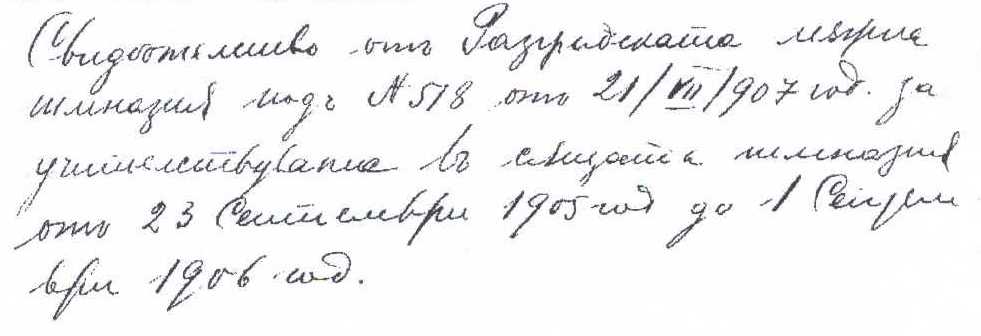 Свидетелство отъ Разградската мѫжка
гимназия подъ № 518 отъ 21/VII/907 год. за
учителствувание въ същата гимназия
отъ 23 Септемврий 1905 год до 1 Септем
врий 1906 год.